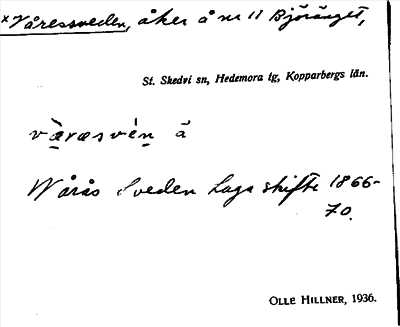 ×Våressveden, åker å nr 11 Björänget,
St. Skedvi sn, Hedemora tg, Kopparbergs län.
vàrəsvén å
Wårås Sveden Laga skifte 1866-
70.
OLLE HILLNER, 1936.